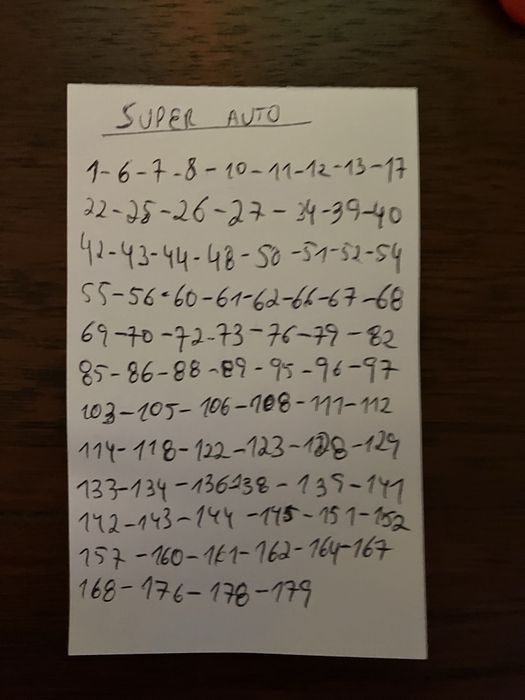 SUPER AUTO
1-6-7-8-10-11-12-13-17
22-25-26-27-34-39-40
42-43-44-48-50-51-52-54
55-56-60-61-62-66-67-68
69-70-72-73-76-79-82
85-86-88-89-95-96-97
103-105-106-108-111-112
114-118-122-123-128-129
133-134-136-138-139-141
142-143-144-145-151-152
157-160-161-162-164-167
168-176-178-179